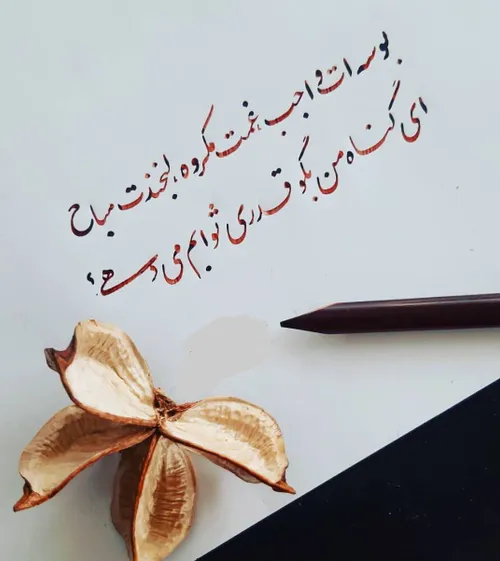 بوسه ات واجب، غمت مکروه، لبخندت مباح
ای گناه من بگو قدری ثوابم می دهی؟